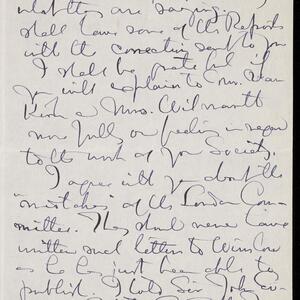 what they are saying. I
shall have some of the Reports
with the correction sent to you
I shall be grateful if
you will explain to Mrs. Van
& Mrs. Wilmarth
more fully our feeling in regard
to the work of your Society.
I agree with you about the
"mistakes" of the London Com-
mittee. They should never have
written such letters to Winslow
as he has just been able to
publish. I told Sir John Ev-